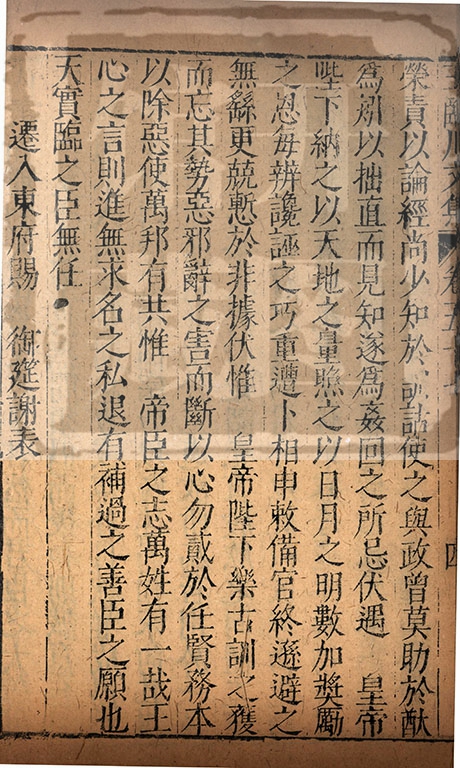 臨川文集 卷五十 四
榮責以論經尚少知於訓詁使之與政曾莫助於猷
爲剏以拙直而見知遂爲姦回之所忌伏遇 皇帝
陛下納之以天地之量照之以日月之明數加獎勵
之恩每辨讒誣之巧重遭卜相申敕備官終遜避之
無繇更兢慙於非據伏惟 皇帝陛下樂古訓之獲
而忘其勢惡邪辭之害而斷以心勿貳於任賢務本
以除惡使萬邦有共惟 帝臣之志萬姓有一哉王
心之言則進無求名之私退有補過之善臣之願也
天實臨之臣無任
遷入東府賜 御筵謝表